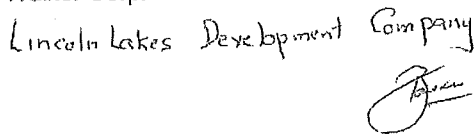 Lincoln Lakes Development Company